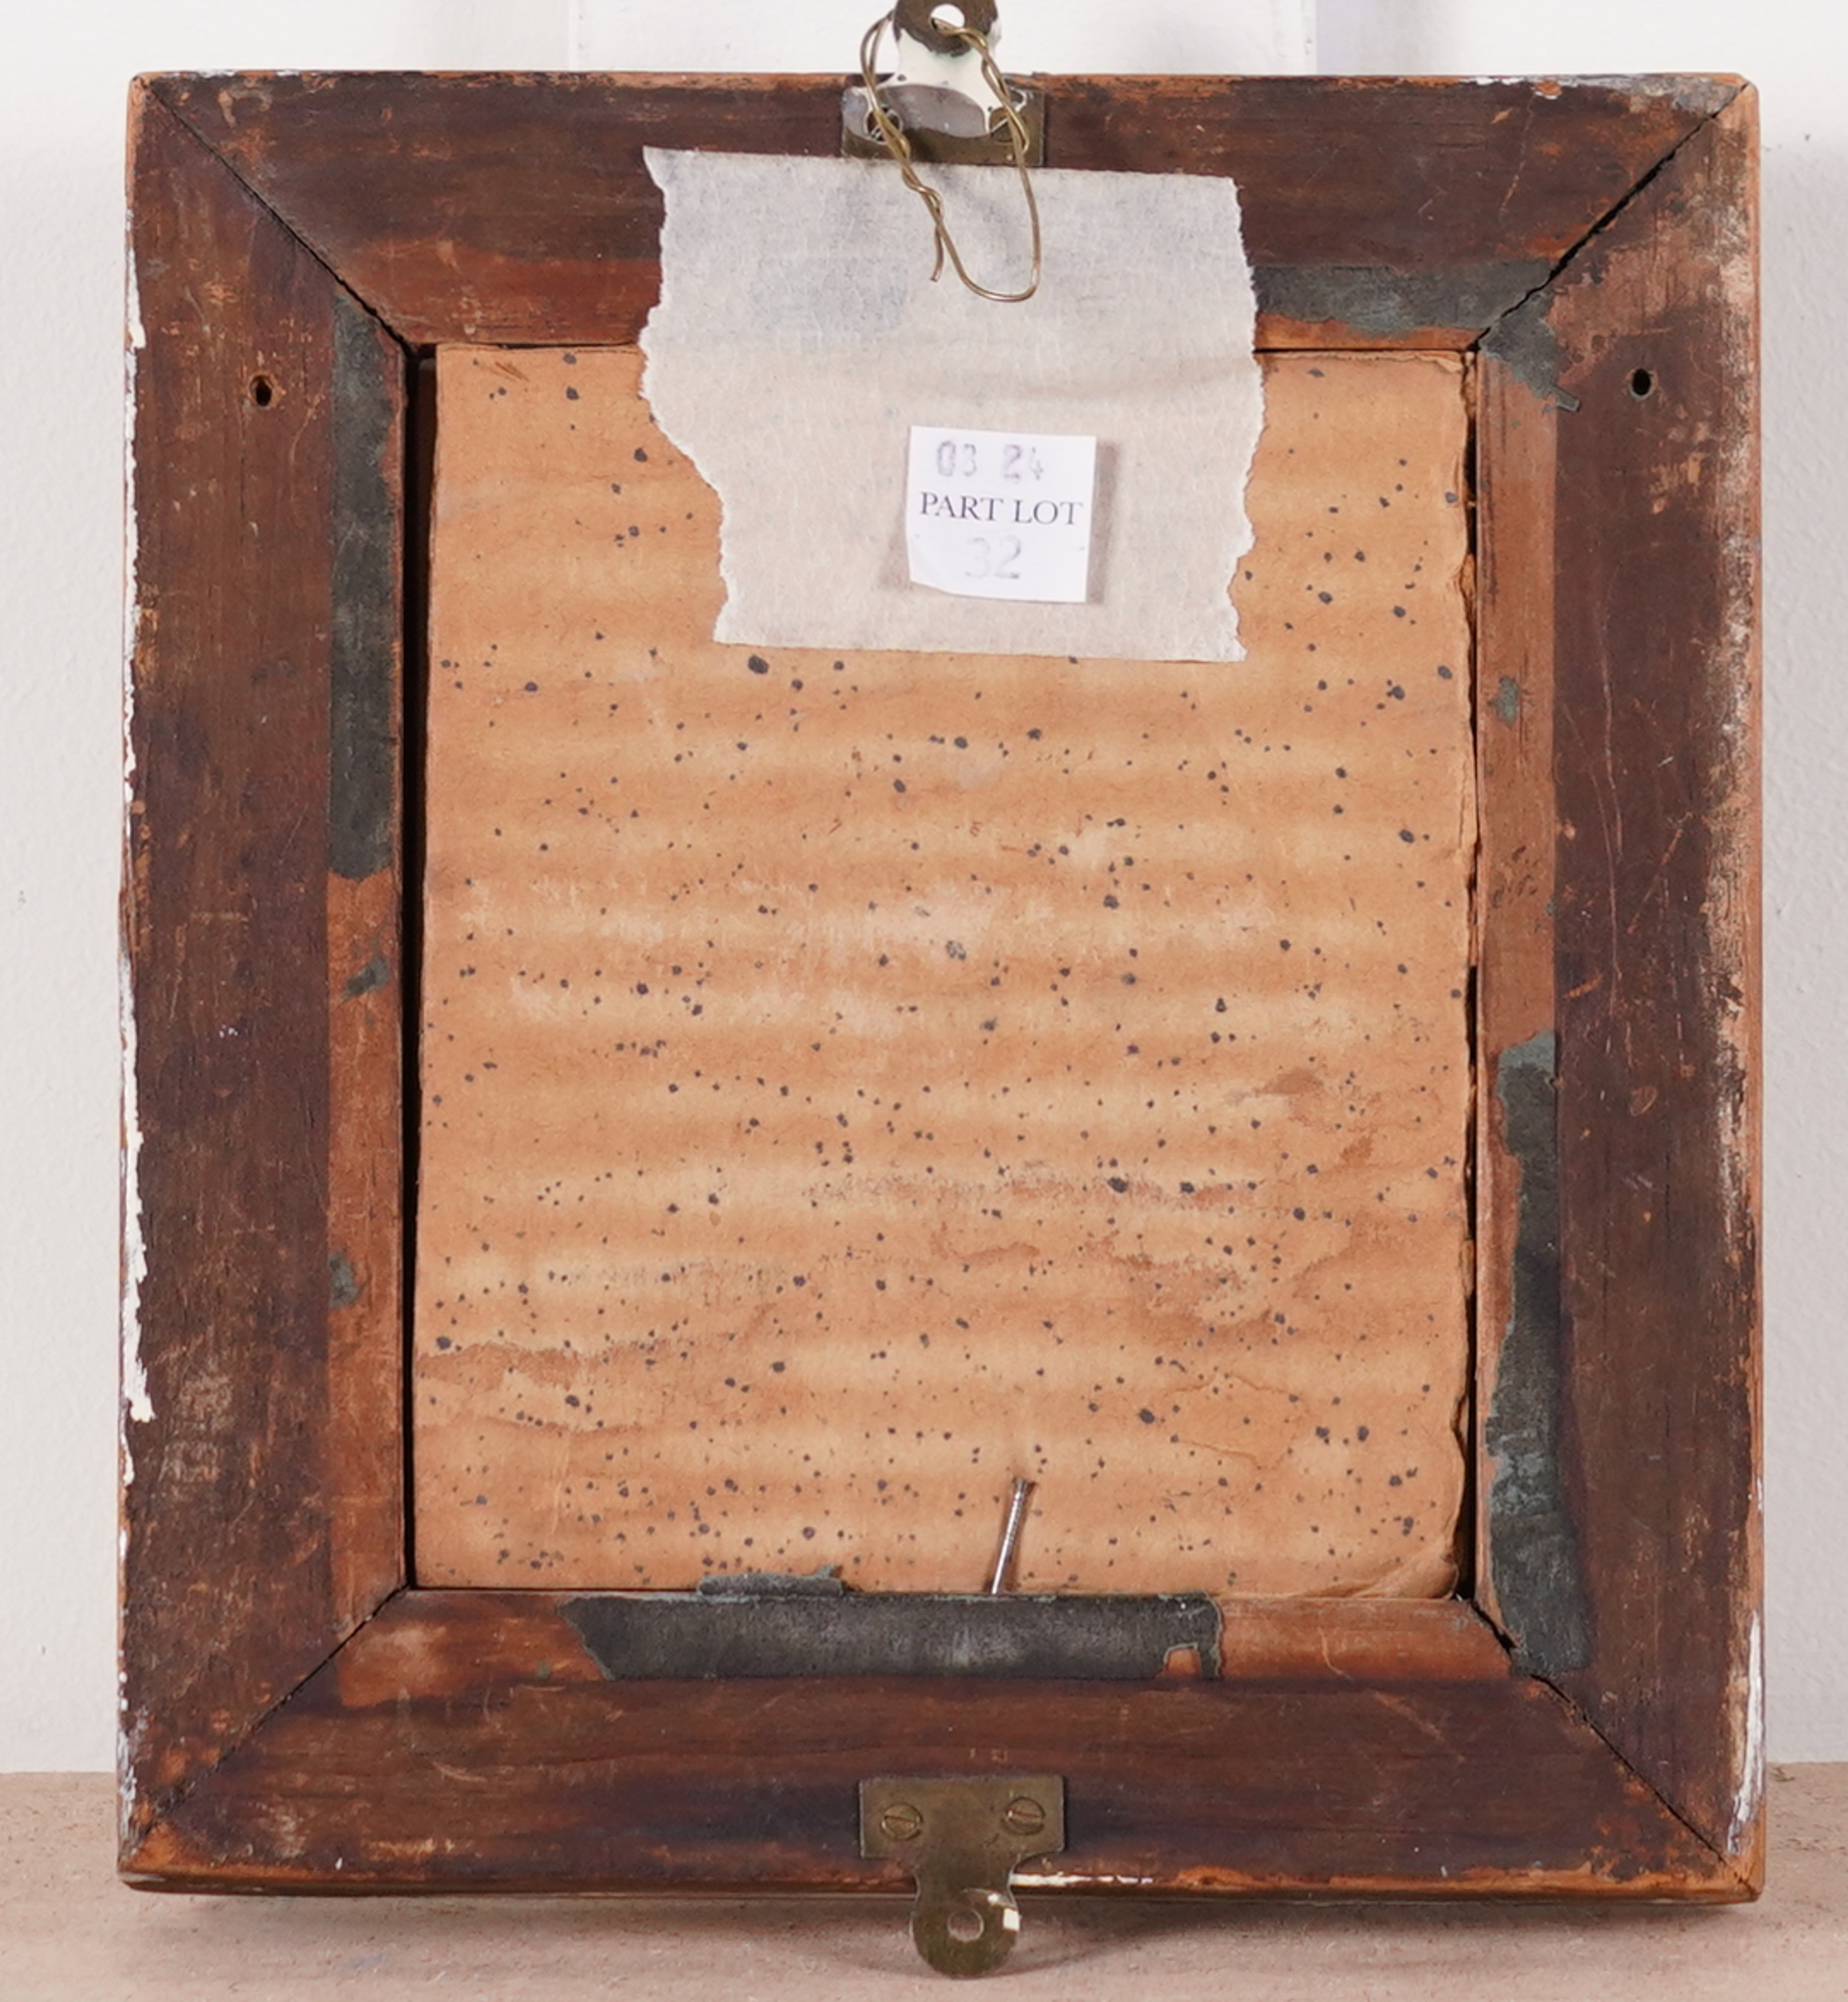 03 24
PART LOT
32